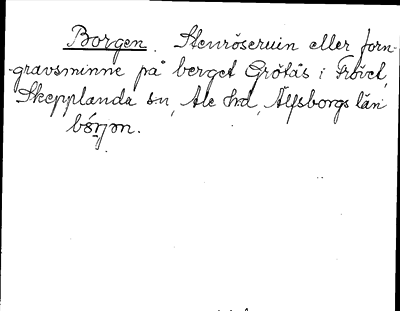 Borgen. Stenröseruin eller forn-
gravsminne på berget Grötås i
Skepplanda sn, Ale hd, Älfsborgs län